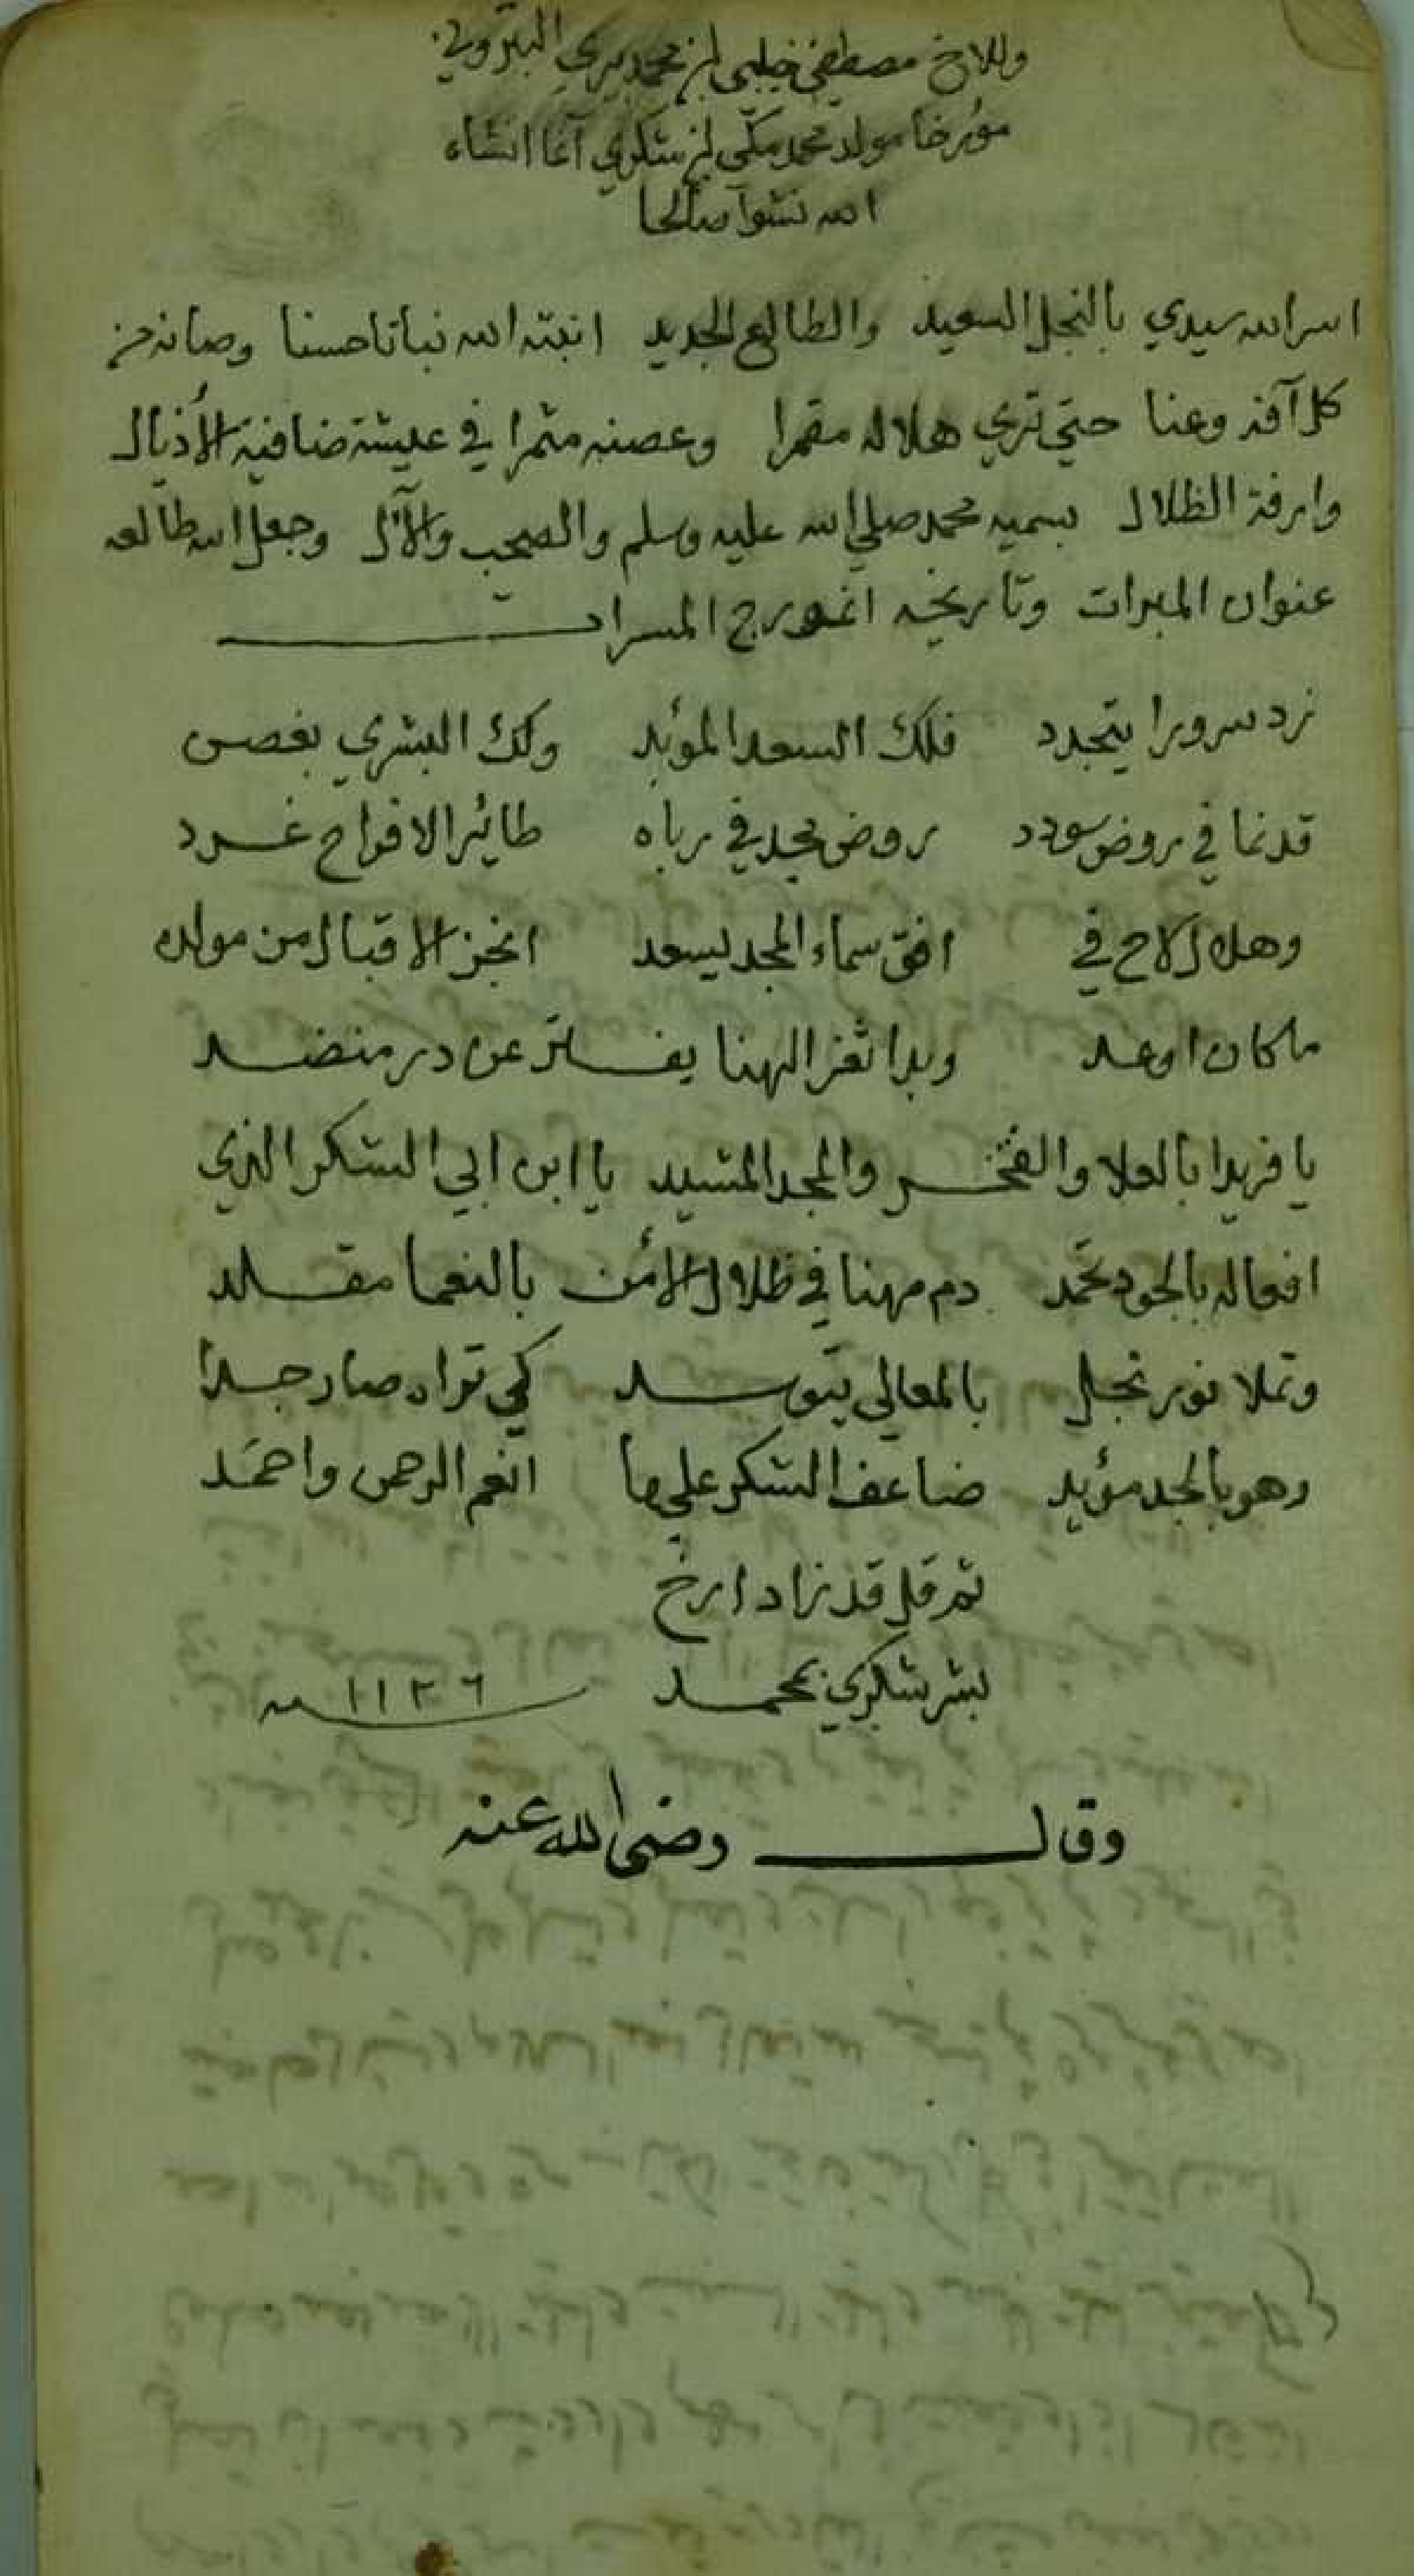 وللاخ مصطفى چلبي ابن محمد بيري البتروني
مؤرخا مولد محمد مكي ابن شكري آغا انشاء
الله نشوا صالحا
اسر الله سيدي بالنجل السعيد والطالع الجديد انبته الله نباتا حسنا وصانه من
كل آفة وعنا حتي تري هلاله مقمرا وغصنه مثمرا في عيشة ضافية الأذيال
وارفة الظلال بسميه محمد صلي الله عليه وسلم والصحب والآل وجعل الله طالعه
عنوان المبرات وتاريخه انموذج المسرات
زد سرورا يتجدد فلك السعد المؤبد ولك البشري بغصن
قد نما في روض سودد روض مجد في رباه طائر الافراح غرد
وهلال لاح في افق سماء المجد يسعد انجز الاقبال من مولده
ما كان اوعد وبدا ثغر الهنا يفتر عن در منضد
يا فريدا بالعلا والفخر والمجد المشيد يا ابن ابي الشكر الذي
افعاله بالجود تحمد دم مهنا في ظلال الأمن بالنعما مقلد
وتملا نور نجل بالمعالي يتوسد كي تراه صار جدا
وهو بالجد مؤيد ضاعف الشكر علي ما انعم الرحمن واحمد
ثم قل قد زاد ارخ
بشر شكري بمحمد ١١٣٦ سنه
وقال رضي الله عنه